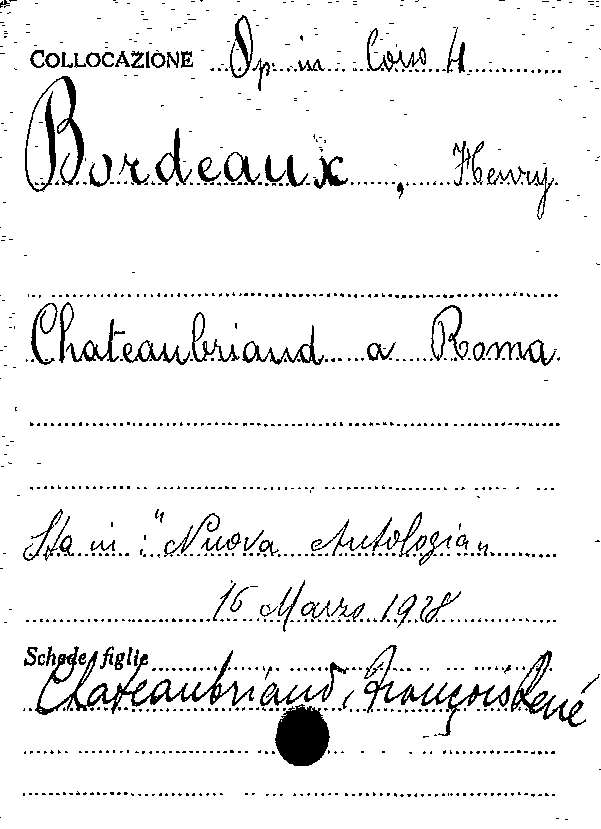 COLLOCAZIONE Op. in Corso 4
Bordeaux, Henry
Chateaubriand a Roma
Sta in: "Nuova Antologia"
16 Marzo 1928
Schede figlie
Chateaubriand, François René